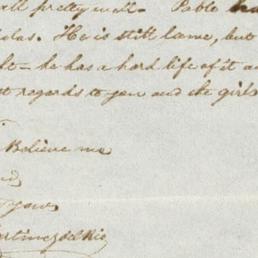 all pretty well. Pablo
las. He is still lame, but
ht - he has a hard life of it a
t regards to you and the girls
Believe me
yours
artinez del Rio